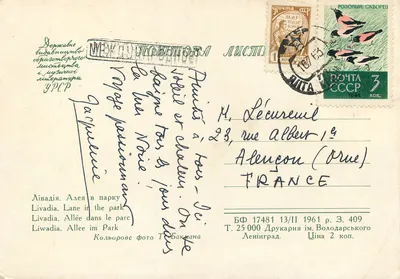 Державне
видавництво
образотворчого
мистецтва
і музичної
літератури
УРСР
ПОШТОВА ЛИСТІВКА
РОЗОВЫЕ СКВОРЦЫ
ПОЧТА
СССР
3
КОП.
ЯЛТА
Amitiés à
tous - Ici
soleil et chaleur. On se
baigne tous les jours dans
la mer Noire!
Voyage passionnant
Jacqueline
M. Lécureuil
23, rue Albert 1er
Alençon (Orne)
FRANCE
Лівадія. Алея в парку
Livadia, Lane in the park
Livadia, Allée dans le parc
Liwadia, Allee im Park
Кольорове фото
БФ 17481 13/II 1961 р З. 409
Т. 25 000 Друкарня ім Володарського
Ленінград. Ціна 2 коп.